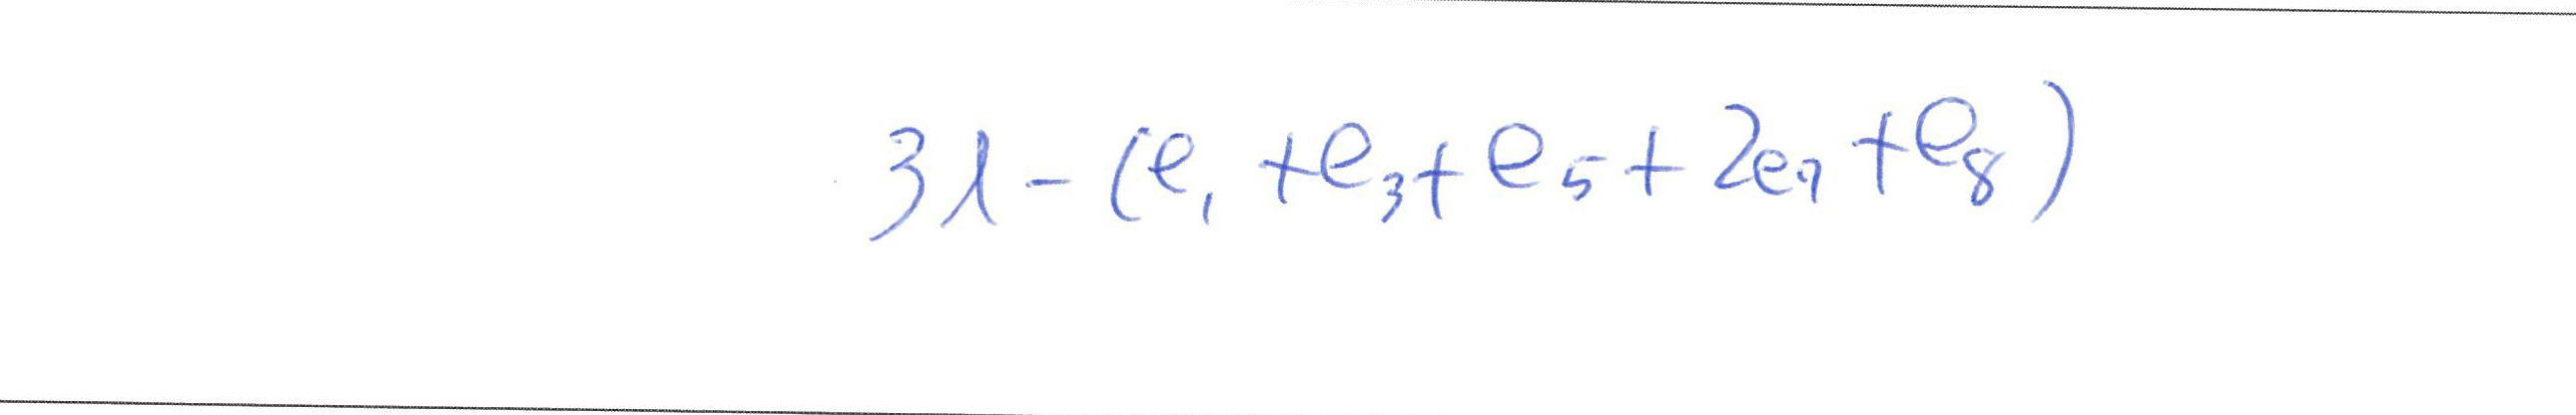 3λ-(e₁+e₃+e₅+2e₇+e₈)